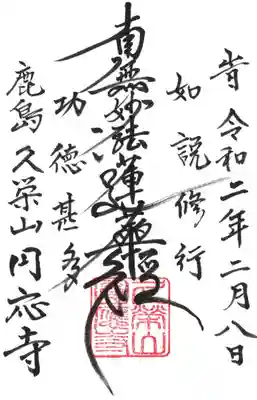 旹 令和二年二月八日
如説修行
南無妙法蓮華経
功徳甚多
鹿島 久栄山 円応寺